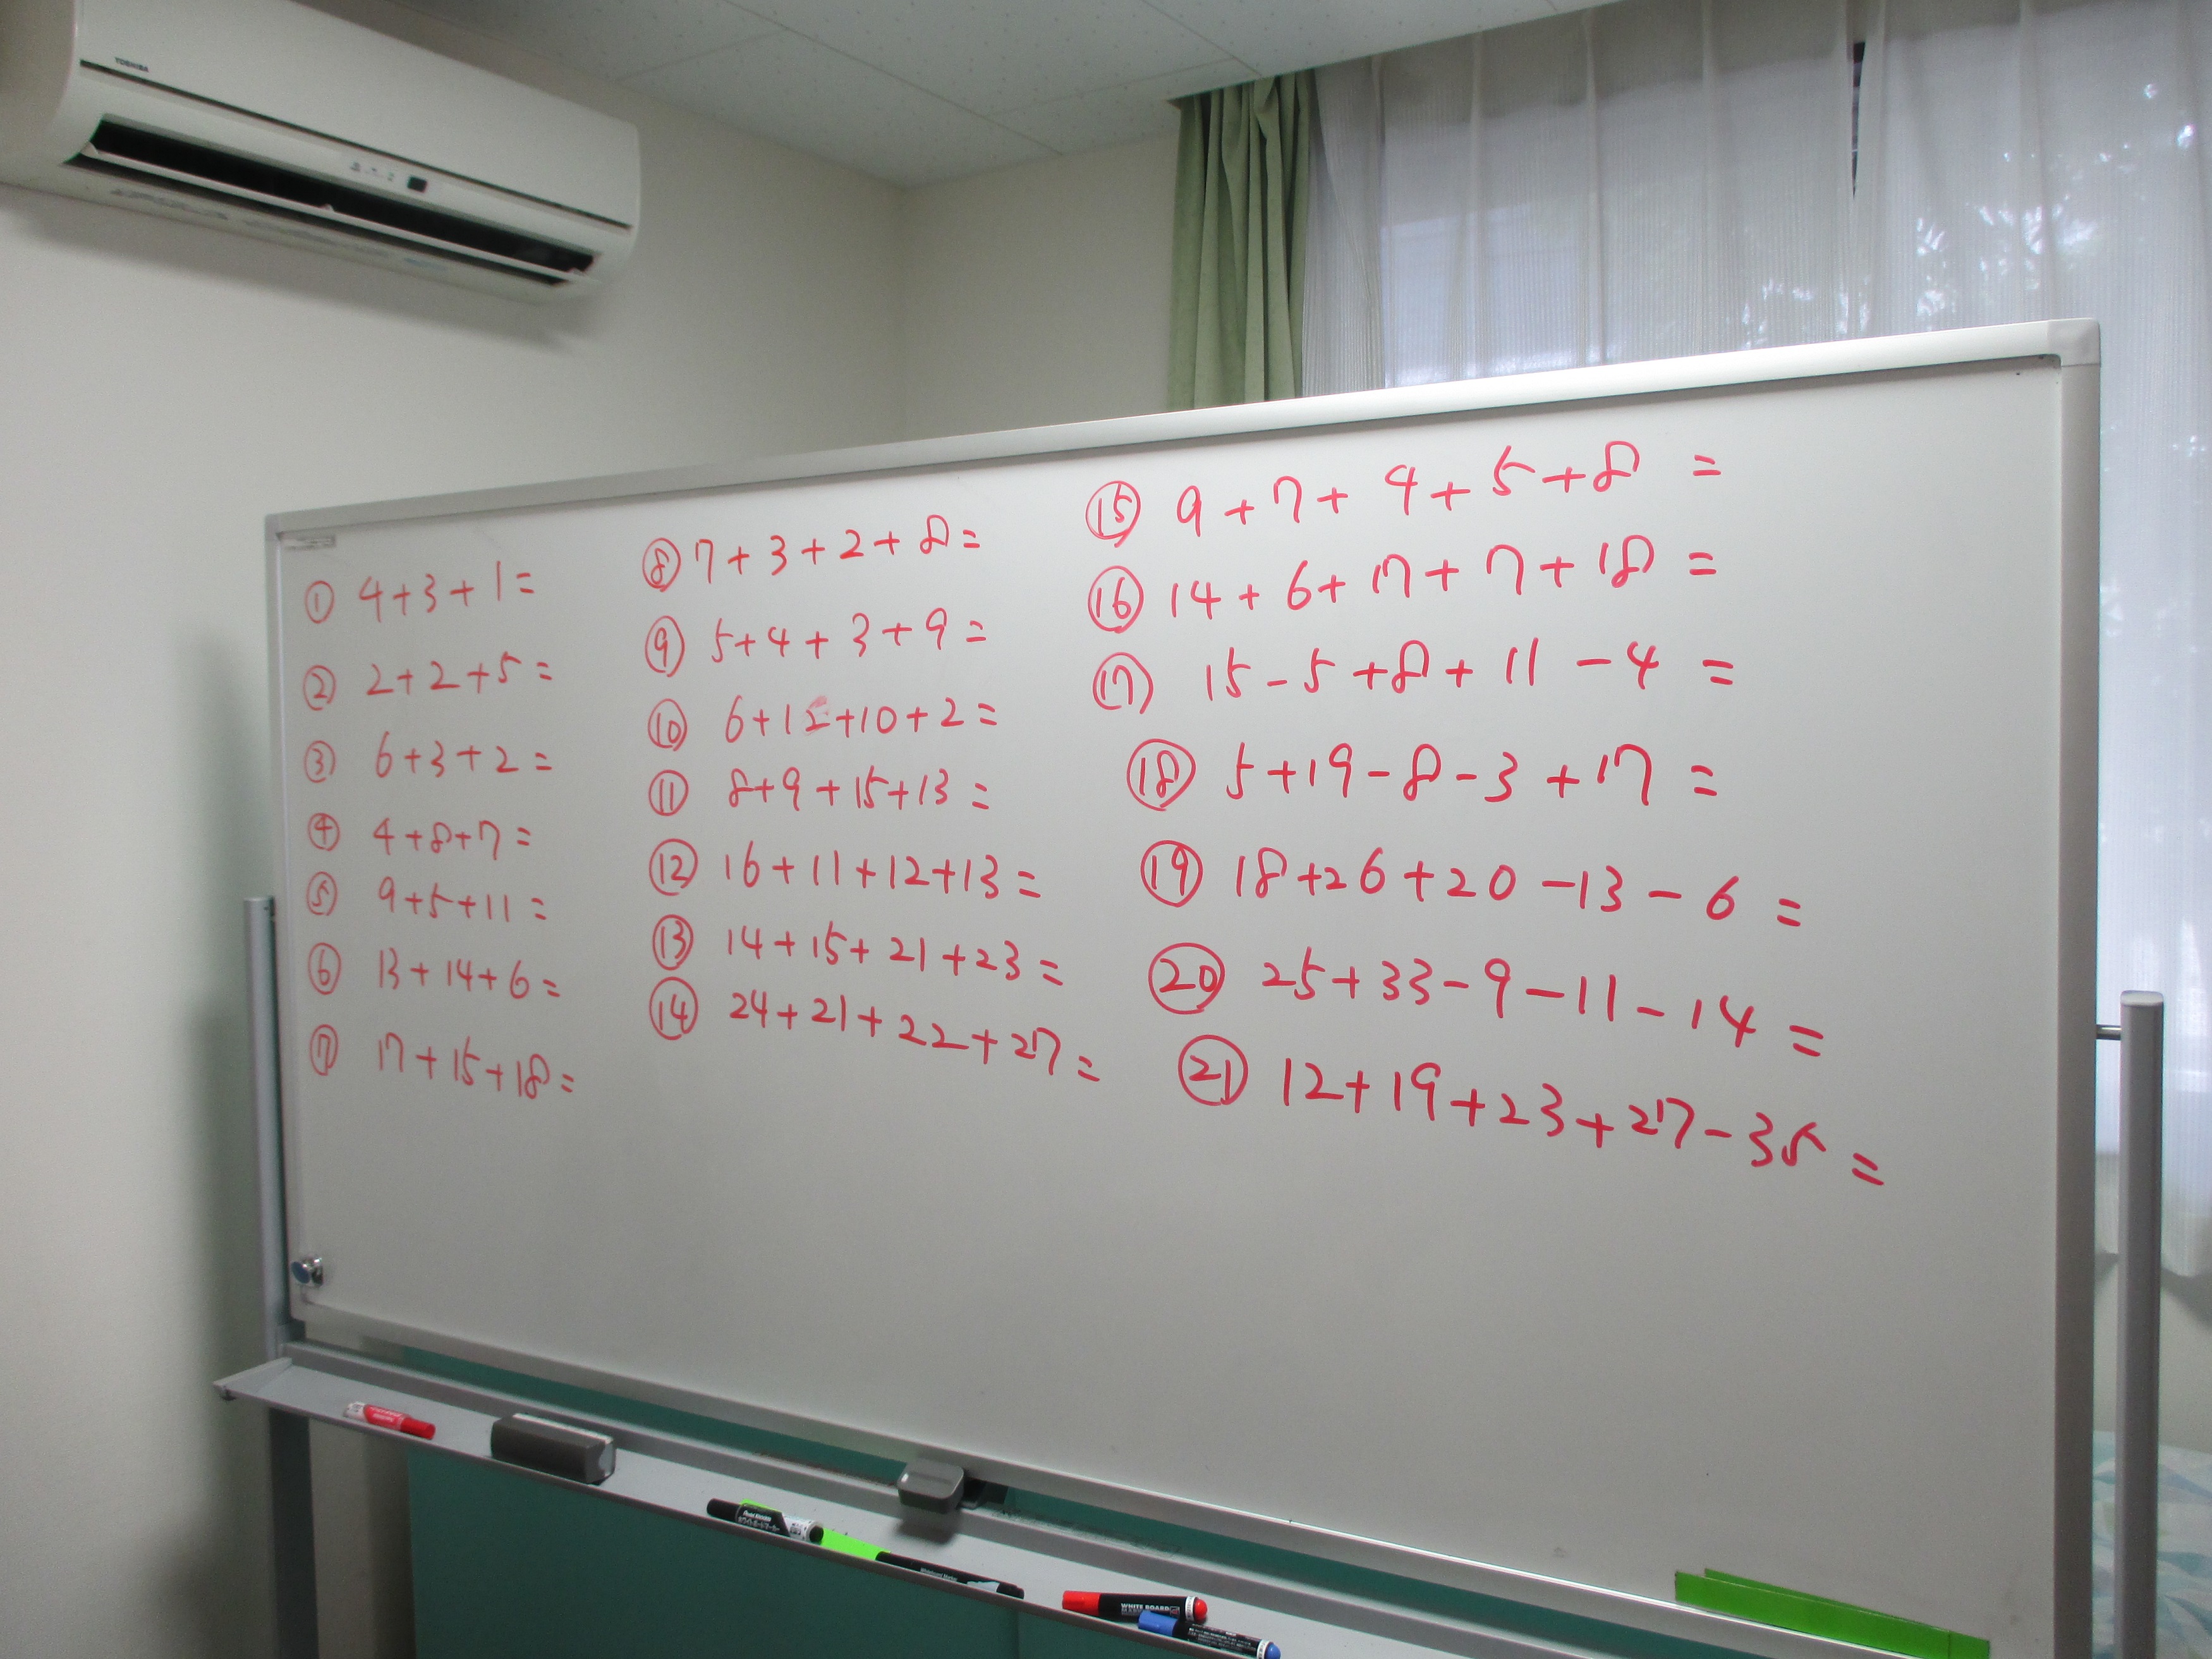 TOSHIBA
① 4+3+1=
② 2+2+5=
③ 6+3+2=
④ 4+8+7=
⑤ 9+5+11=
⑥ 13+14+6=
⑦ 17+15+18=
⑧ 7+3+2+8=
⑨ 5+4+3+9=
⑩ 6+12+10+2=
⑪ 8+9+15+13=
⑫ 16+11+12+13=
⑬ 14+15+21+23=
⑭ 24+21+22+27=
⑮ 9+7+4+5+8=
⑯ 14+6+17+7+18=
⑰ 15-5+8+11-4=
⑱ 5+19-8-3+17=
⑲ 18+26+20-13-6=
⑳ 25+33-9-11-14=
㉑ 12+19+23+27-35=
WHITE BOARD